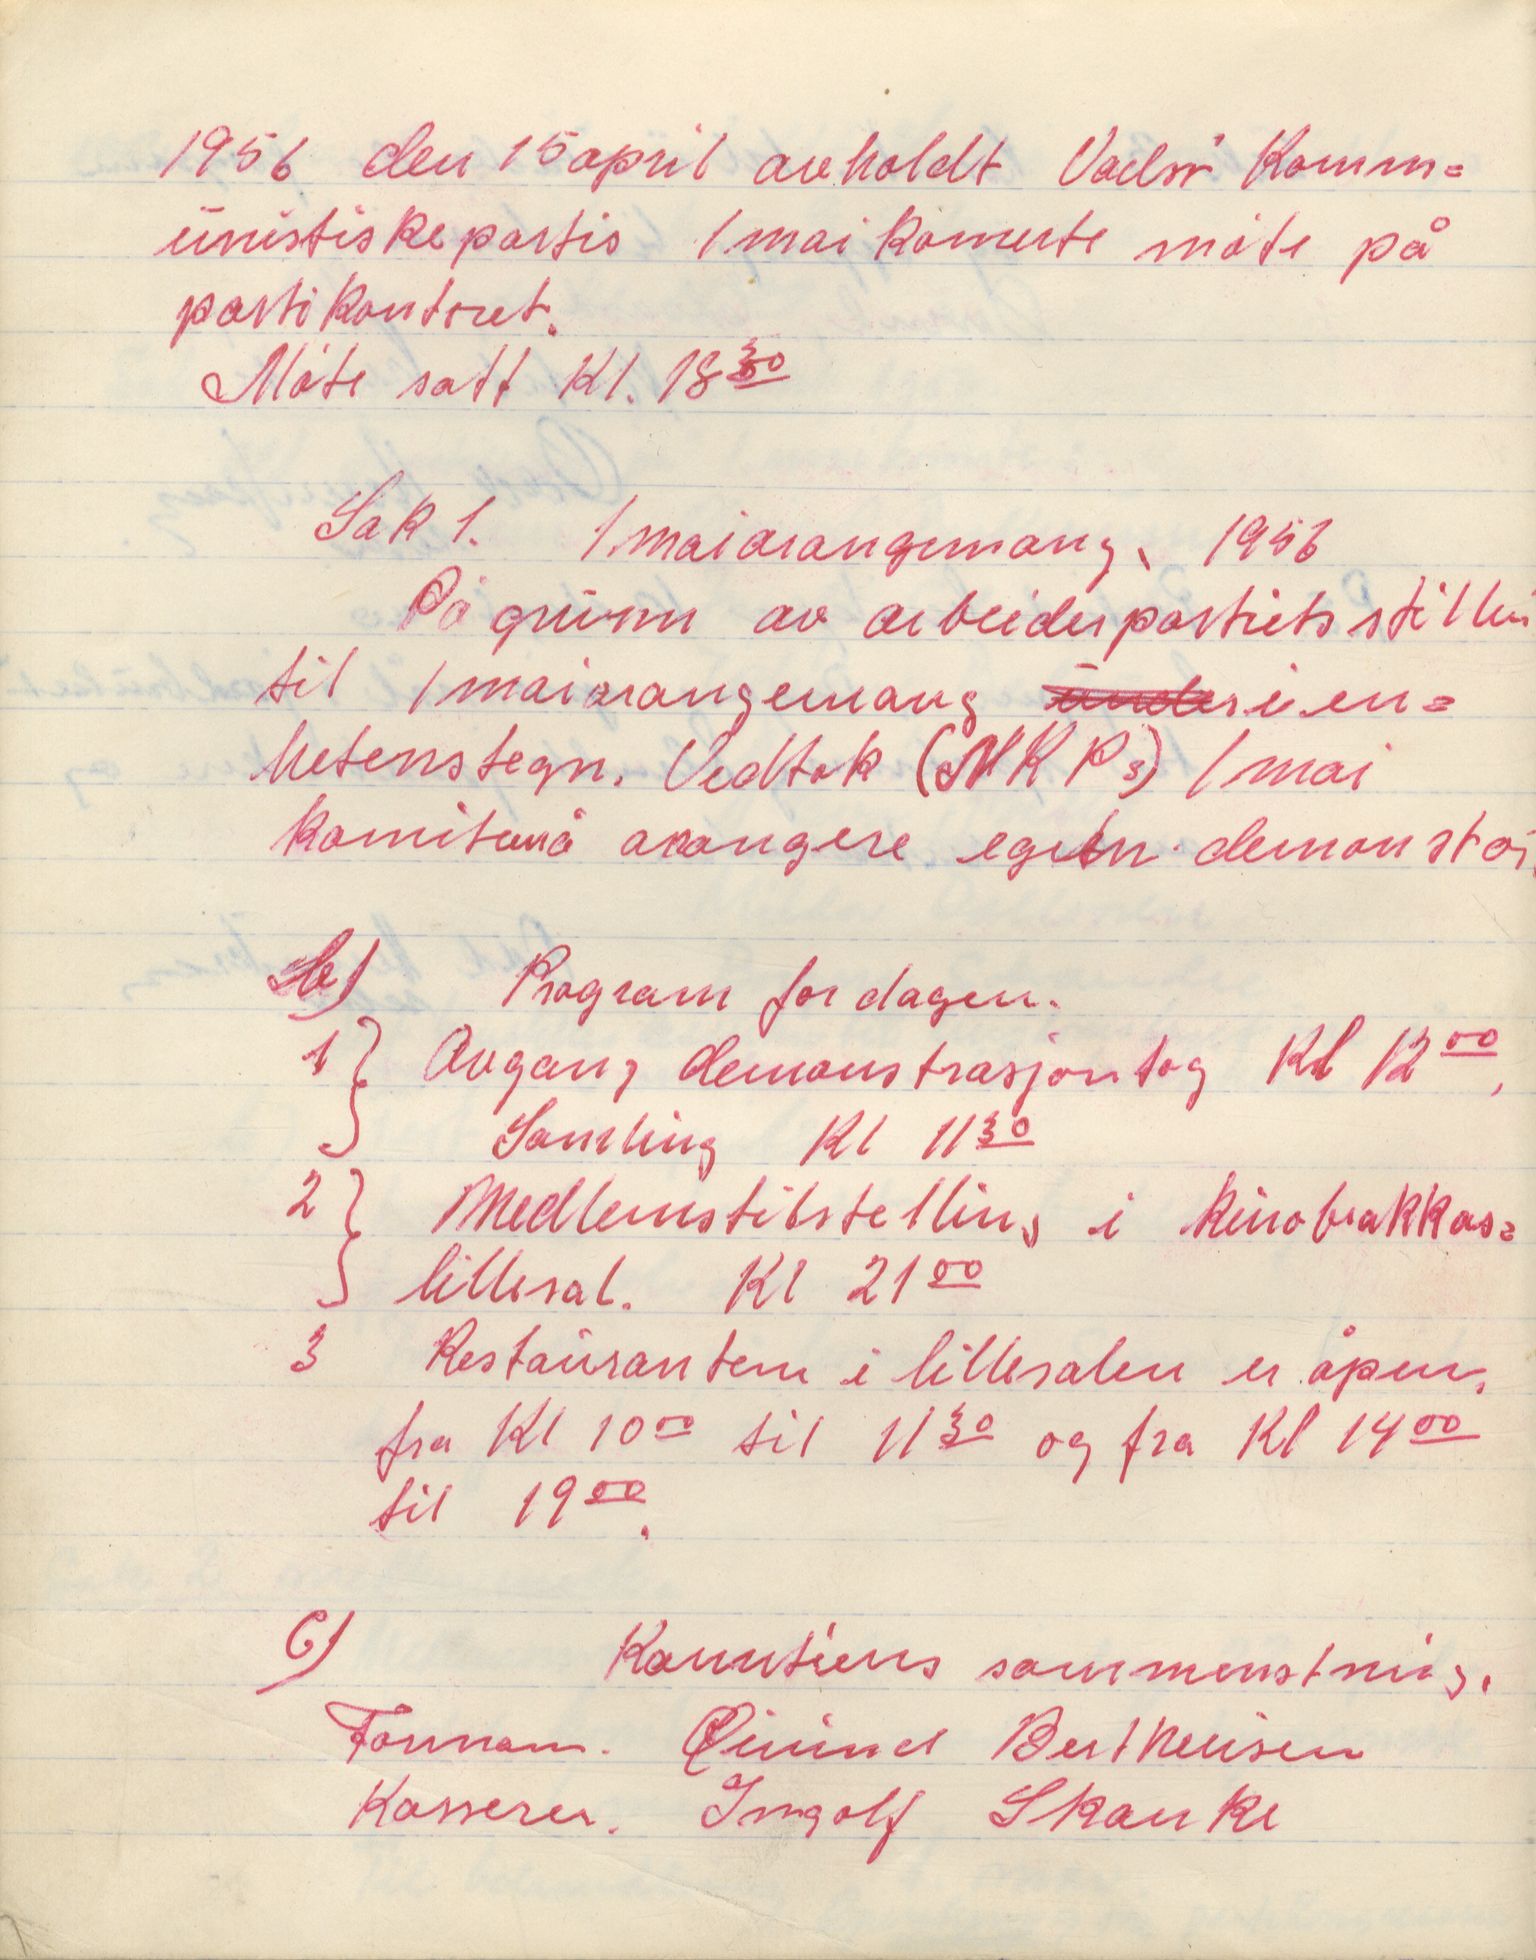 1956 den 15 april avholdt Vadsö Komm=
ünistiske partis 1 mai komerte möte på
partikontoret.
Möte satt Kl. 18 30
Sak 1. 1 maiarangemang. 1956
På grünn av arbeiderpartiets stillin
til 1 maiarangemang i en=
hetenstegn. Vedtok (NKPs) 1 mai
arangere egen demonstra
b) Program for dagen.
1} Avgang demonstrasjontog Kl 12 00,
Samling Kl 11 30
2} Medlemstilstelling i kinobrakkas=
lillesal. Kl 21 00
3 Restaüranten i lillesalen er åpen,
fra Kl 10 00 til 11 30 og fra Kl 14 00
til 19 00.
C) sammenstning.
Formann. Öivind Bertheüsen
Kasserer. Ingolf Skanke